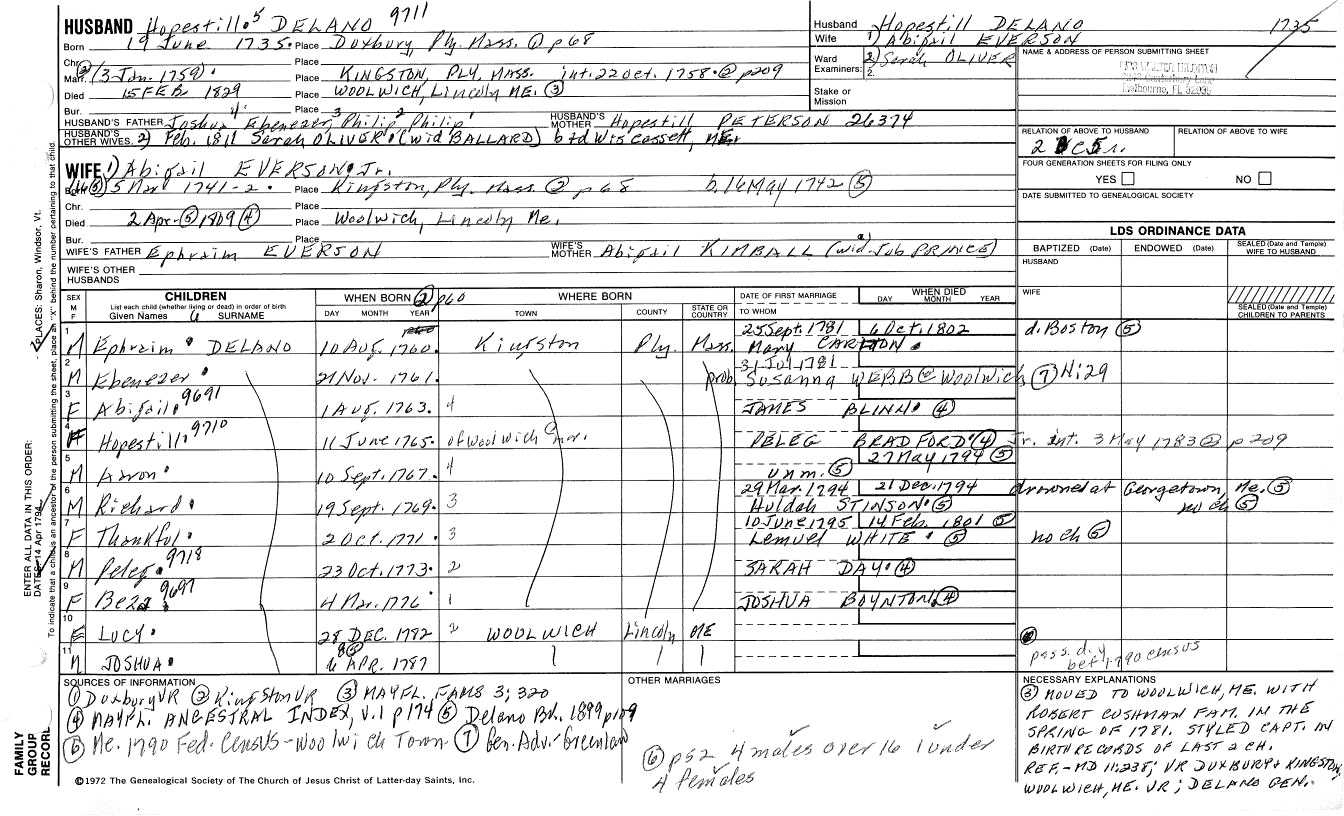 HUSBAND Hopestill 5 DELANO 9711
Born 19 June 1735. Place Duxbury Ply. Mass. ① p68
Chr. Place
Marr. ② (3 Jan. 1759). Place KINGSTON, PLY, MASS. int. 22 Oct. 1758. ② p209
Died 15 FEB 1829 Place WOOLWICH, Lincoln ME. ③
Bur. Place
HUSBAND'S FATHER Joshua 4 Ebenezer, 3 Philip 2 Philip 1 HUSBAND'S MOTHER Hopestill PETERSON 26374
HUSBAND'S OTHER WIVES 2) Feb. 1811 Sarah OLIVER (wid BALLARD) b + d Wiscassett, ME.
Husband Hopestill DELANO 1735
Wife 1) Abigail EVERSON
Ward 1. 2) Sarah OLIVER
Examiners: 2.
Stake or Mission
NAME & ADDRESS OF PERSON SUBMITTING SHEET
Melbourne, FL
RELATION OF ABOVE TO HUSBAND RELATION OF ABOVE TO WIFE
FOUR GENERATION SHEETS FOR FILING ONLY
YES NO
DATE SUBMITTED TO GENEALOGICAL SOCIETY
WIFE 1) Abigail EVERSON Jr.
Born ⑤ 5 Mar 1741-2. Place Kingston, Ply. Mass. ② p68 b. 16 May 1742 ⑤
Chr. Place
Died 2 Apr. ⑤ 1809 ④ Place Woolwich, Lincoln Me.
Bur. Place
WIFE'S FATHER Ephraim EVERSON WIFE'S MOTHER Abigail KIMBALL (wid. Job PRINCE)
WIFE'S OTHER HUSBANDS
LDS ORDINANCE DATA
BAPTIZED (Date) ENDOWED (Date) SEALED (Date and Temple) WIFE TO HUSBAND
HUSBAND
WIFE
SEALED (Date and Temple) CHILDREN TO PARENTS
SEX M F CHILDREN List each child (whether living or dead) in order of birth Given Names SURNAME WHEN BORN ② p60 DAY MONTH YEAR WHERE BORN TOWN COUNTY STATE OR COUNTRY DATE OF FIRST MARRIAGE TO WHOM WHEN DIED DAY MONTH YEAR
25 Sept. 1781 6 Oct. 1802
1 M Ephraim DELANO 10 Aug. 1760. Kingston Ply. Mass. Mary d. Boston ⑤
31 Jul 1781
2 M Ebenezer 21 Nov. 1761. prob. Susanna WEBB @ Woolwich ⑦ N:29
3 F Abigail 9691 1 Aug. 1763. 4 JAMES BLINN ④
4 F Hopestill 9710 11 June 1765. of Woolwich @ mar. PELEG BRADFORD ④ Jr. int. 3 May 1783 ② p209
27 May 1794 ⑤
5 M Aaron 10 Sept. 1767. 4 unm. ⑤
29 Mar. 1794 21 Dec. 1794 drowned at Georgetown, Me. ⑤
6 M Richard 19 Sept. 1769. 3 Huldah STINSON ⑤ no ch ⑤
10 June 1795 14 Feb. 1801 ⑤
7 F Thankful 2 Oct. 1771. 3 Lemuel WHITE ⑤ no ch ⑤
8 M Peleg 9718 23 Oct. 1773. 2 SARAH DAY ④
9 F Beza 9697 4 Mar. 1776 1 JOSHUA BOYNTON ④
10 F LUCY. 28 DEC. 1782 2 WOOLWICH Lincoln ME
11 M JOSHUA. APR. 1787 poss. d. y bef 1790 census
SOURCES OF INFORMATION
① Duxbury VR ② Kingston VR ③ MAYFL. FAMS 3; 320
④ MAYFL. ANCESTRAL INDEX, v.1 p174 ⑤ Delano Bk. 1899 p109
⑥ Me. 1790 Fed. Census - Woolwich Town ⑦ Gen. Adv. - Greenlaw
OTHER MARRIAGES
⑥ p52 4 males over 16 1 under
4 females
NECESSARY EXPLANATIONS
③ MOVED TO WOOLWICH, ME. WITH
ROBERT CUSHMAN FAM. IN THE
SPRING OF 1781. STYLED CAPT. IN
BIRTH RECORDS OF LAST 2 CH.
REF. - MD 11:238; VR DUXBURY & KINGSTON,
WOOLWICH, ME. VR; DELANO GEN.
©1972 The Genealogical Society of The Church of Jesus Christ of Latter-day Saints, Inc.
FAMILY GROUP RECORD
ENTER ALL DATA IN THIS ORDER:
DATES: 14 Apr 1794 PLACES: Sharon, Windsor, Vt.
To indicate that a child is an ancestor of the person submitting the sheet, place an "X" behind the number pertaining to that child.